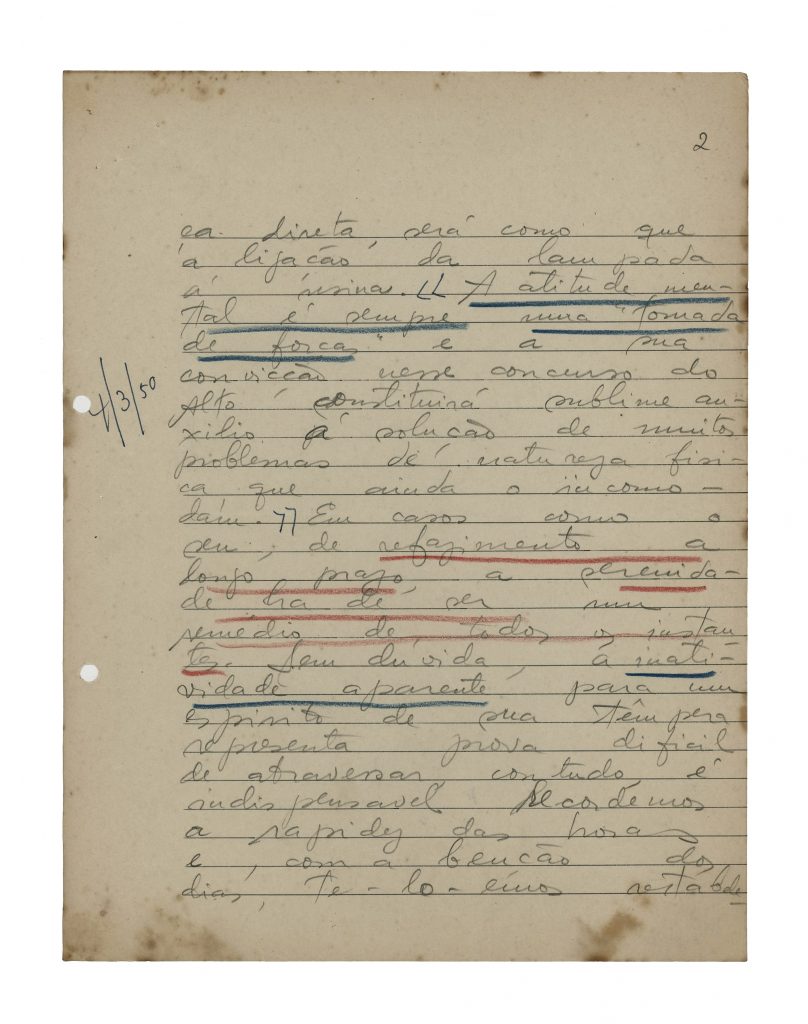 2
ca direta, será como que
a ligação da lampada
á usina. "A atitude men-
tal é sempre uma "tomada
de forças" e a sua
convicção nesse concurso do
Alto constituirá sublime au-
xilio á solução de muitos
problemas de natureza fisi-
ca que ainda o incomo-
dam." Em casos como o
seu, de refazimento a
longo prazo, a serenida-
de ha de ser um
remédio de todos os instan
tes. Sem dúvida, a inati-
vidade aparente, para um
espirito de sua têmpera
representa prova dificil
de atravessar, contudo, é
indispensavel. Recordemos
a rapidez das horas
e, com a benção dos
dias, te-lo-emos restabele
4/3/50